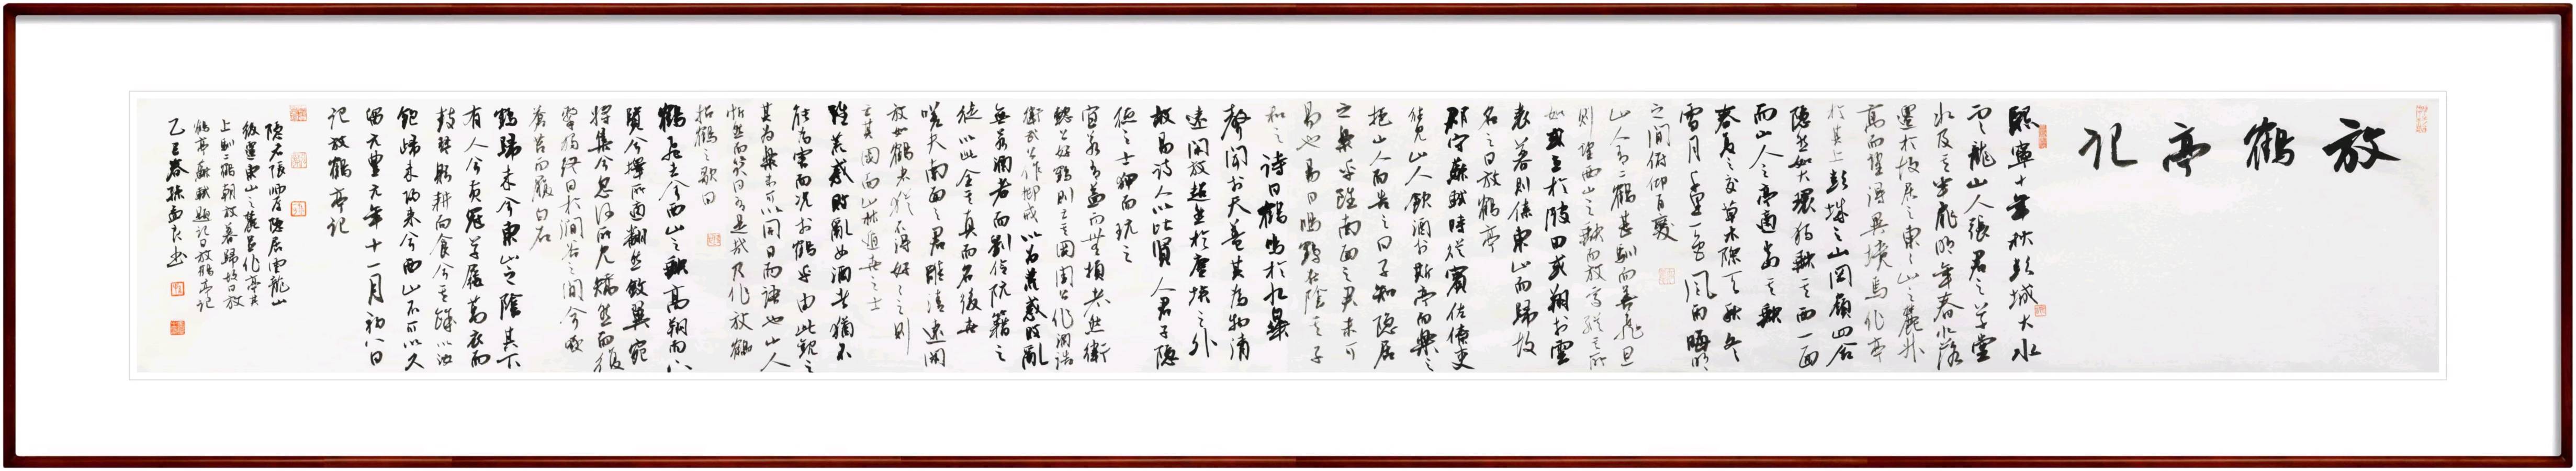 放鶴亭記
熙寧十年秋彭城大水
雲龍山人張君之草堂
水及其半扉明年春水落
遷於故居之東東山之麓升
高而望得異境焉作亭
於其上彭城之山岡嶺四合
隱然如大環獨缺其西一面
而山人之亭適當其缺
春夏之交草木際天秋冬
雪月千里一色風雨晦明
之間俯仰百變
山人有二鶴甚馴而善飛旦
則望西山之缺而放焉縱其所
如或立於陂田或翔於雲
表暮則傃東山而歸故
名之曰放鶴亭
郡守蘇軾時從賓佐僚吏
往見山人飲酒於斯亭而樂之
挹山人而告之曰子知隱居
之樂乎雖南面之君未可
易也易曰鳴鶴在陰其子
和之詩曰鶴鳴於九皋
聲聞於天蓋其為物清
遠閑放超然於塵埃之外
故易詩人以比賢人君子隱
德之士狎而玩之
宜若有益而無損者然衛
懿公好鶴則亡其國周公作酒誥
衛武公作抑戒以為荒惑敗亂
無若酒者而劉伶阮籍之
徒以此全其真而名後世
嗟夫南面之君雖清遠閑
放如鶴者猶不得好好之則
亡其國而山林遁世之士
雖荒惑敗亂如酒者猶不
能為害而況於鶴乎由此觀之
其為樂未可以同日而語也山人
忻然而笑曰有是哉乃作放鶴
招鶴之歌曰
鶴飛去兮西山之缺高翔而下
覽兮擇所適翻然斂翼宛
將集兮忽何所見矯然而復
擊獨終日於澗谷之間兮啄
蒼苔而履白石
鶴歸來兮東山之陰其下
有人兮黃冠草屨葛衣而
鼓琴躬耕而食兮其餘以汝
飽歸來歸來兮西山不可以久
留元豐元年十一月初八日
記放鶴亭記
隱者張師厚隱居雲龍山
後遷東山之麓呂作亭其
上馴二鶴朝放暮歸故曰放
鶴亭蘇軾題記曰放鶴亭記
乙巳春孫西良書